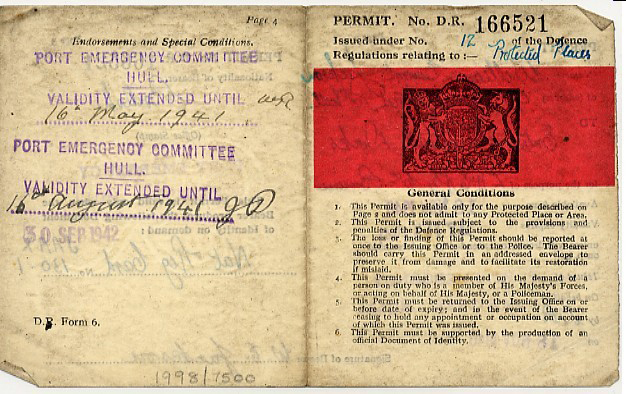 Page 4
Endorsements and Special Conditions.
PORT EMERGENCY COMMITTEE
HULL.
VALIDITY EXTENDED UNTIL
16 May 1941
PORT EMERGENCY COMMITTEE
HULL.
VALIDITY EXTENDED UNTIL
16th August 1941
30 SEP 1942
D.R. Form 6.
1998/7500
PERMIT. No. D.R. 166521
Issued under No. 12 of the Defence
Regulations relating to :— Protected Places
General Conditions
1. This Permit is available only for the purpose described on
Page 2 and does not admit to any Protected Place or Area.
2. This Permit is issued subject to the provisions and
penalties of the Defence Regulations.
3. The loss or finding of this Permit should be reported at
once to the Issuing Office or to the Police. The Bearer
should carry this Permit in an addressed envelope to
preserve it from damage and to facilitate its restoration
if mislaid.
4. This Permit must be presented on the demand of a
person on duty who is a member of His Majesty's Forces,
or acting on behalf of His Majesty, or a Policeman.
5. This Permit must be returned to the Issuing Office on or
before date of expiry; and in the event of the Bearer
ceasing to hold any appointment or occupation on account
of which this Permit was issued.
6. This Permit must be supported by the production of an
official Document of Identity.